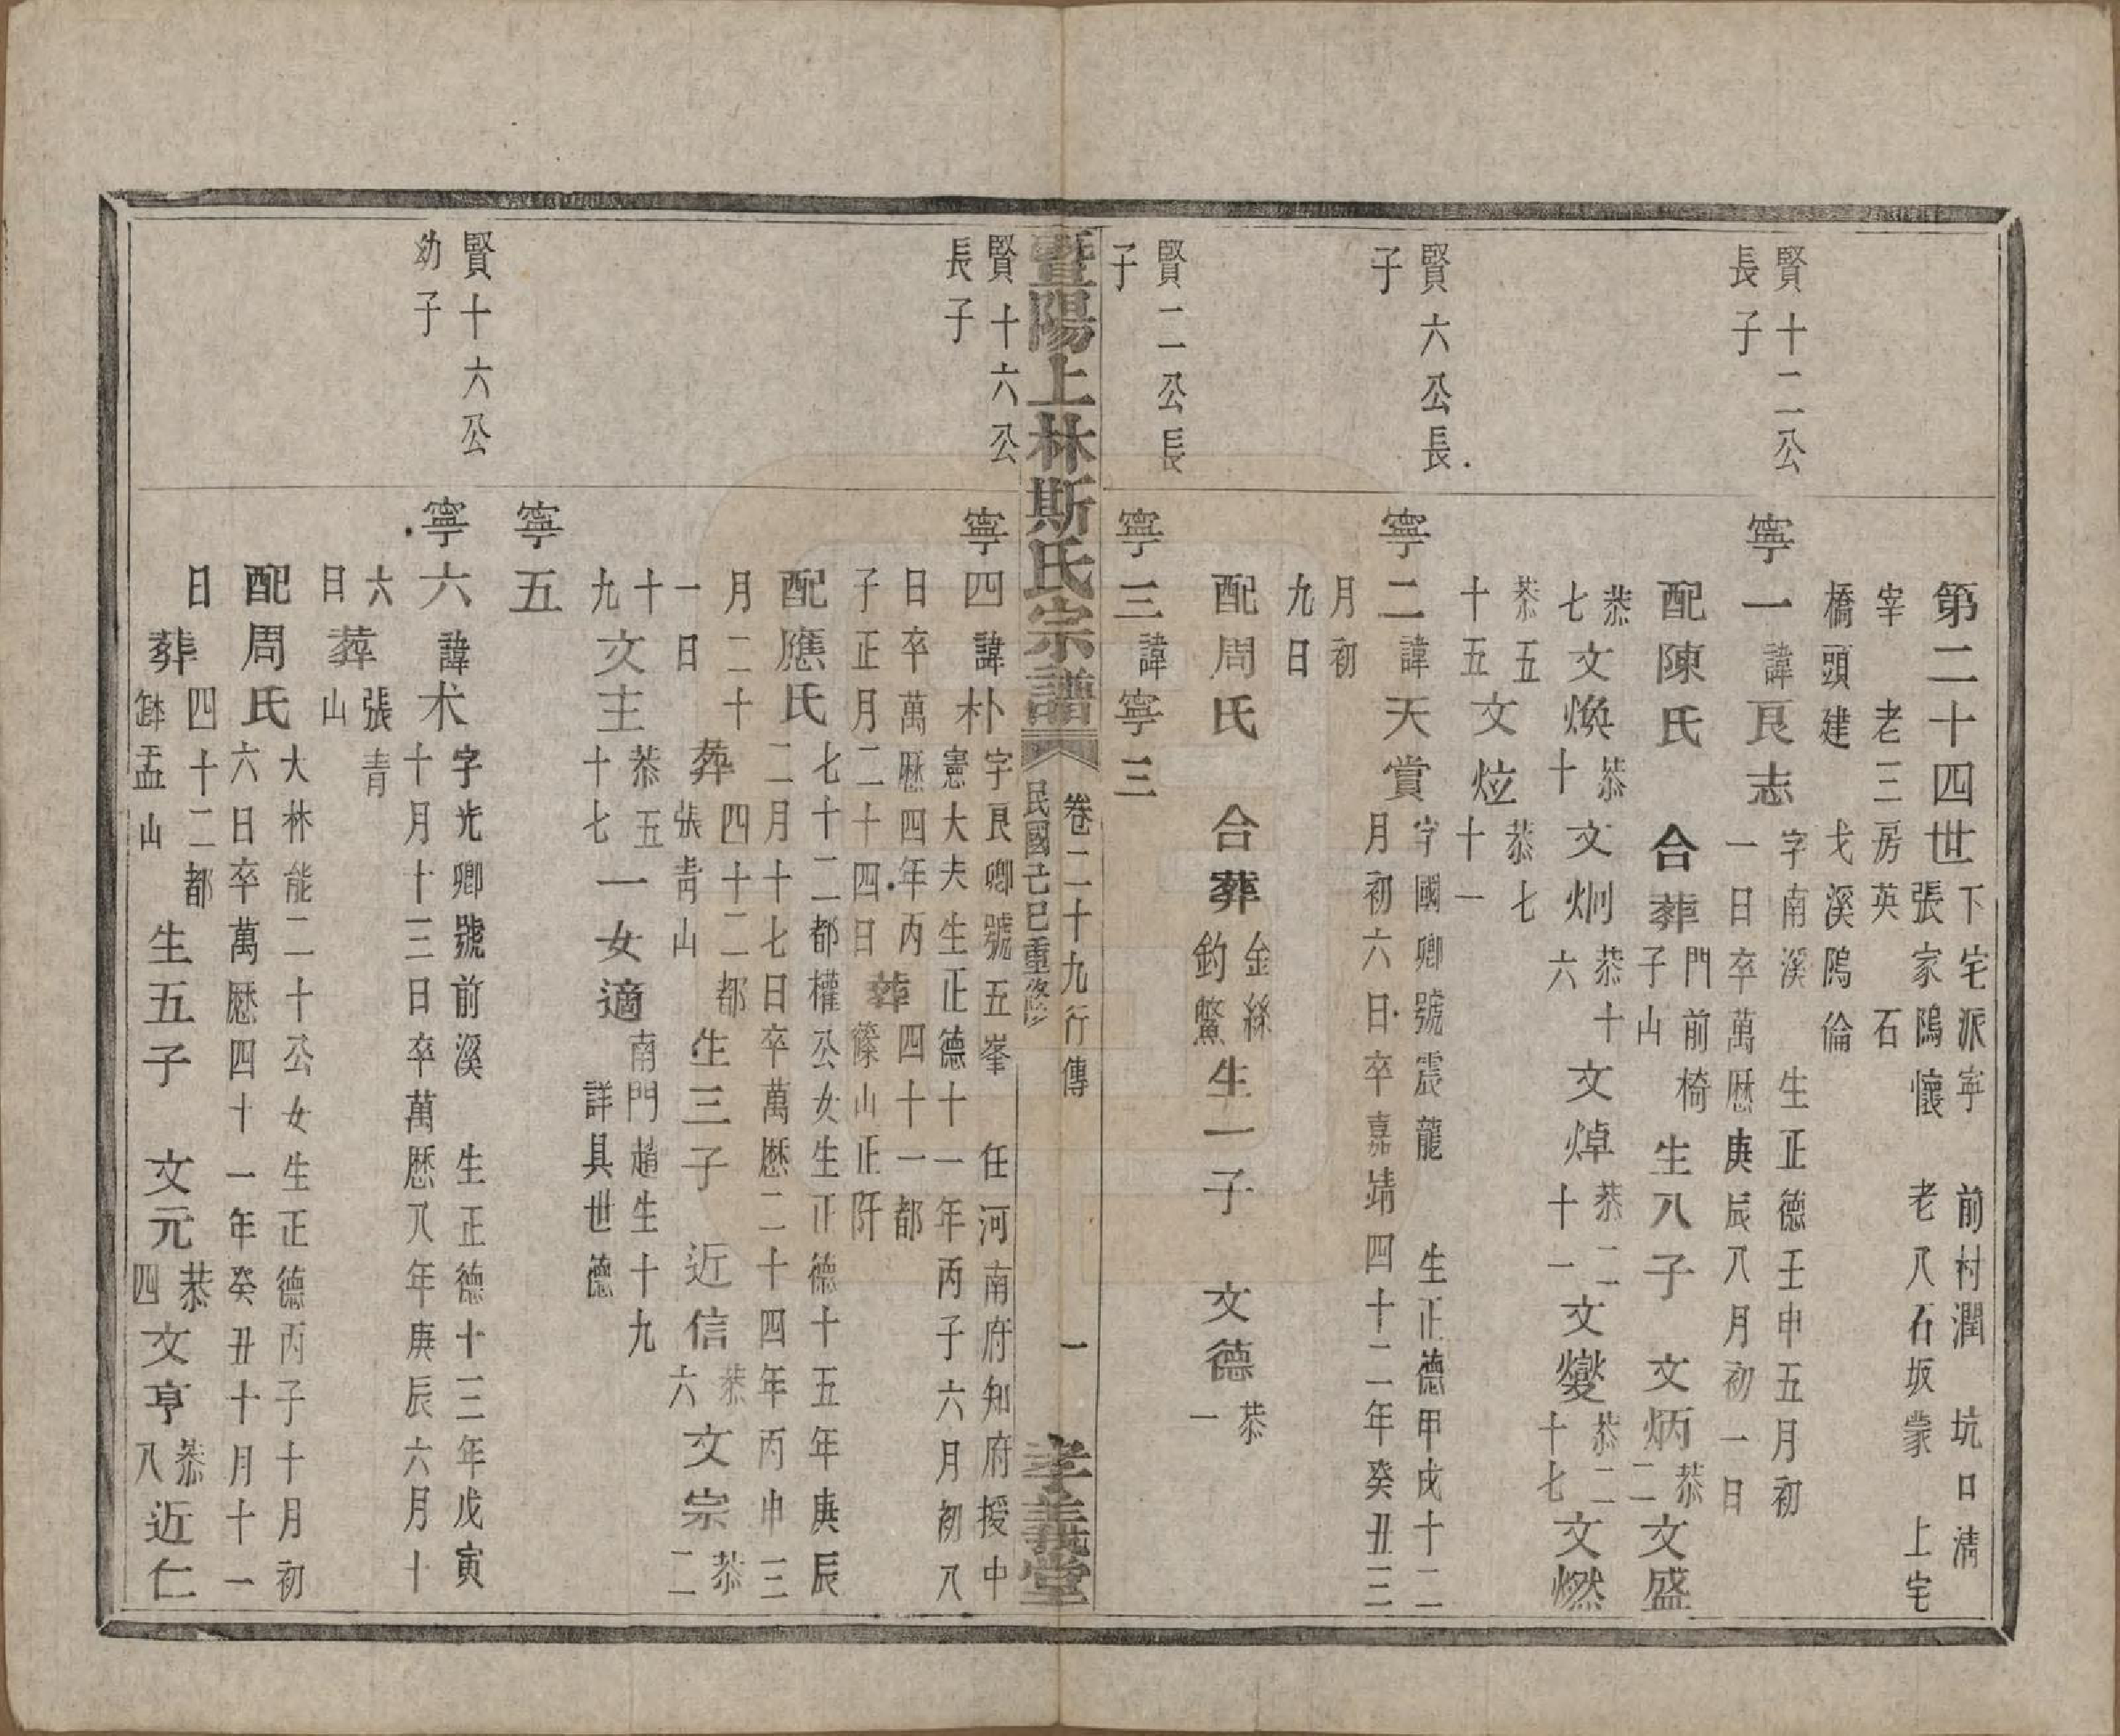 第二十四世 下宅派寧 前村潤 坑口淸
張家隝懷 老八石坂蒙 上宅
宰 老三房英 石
橋頭建 戈溪隝倫
賢十二公
長子
寧一 諱良志 字南溪 生正德壬申五月初
一日卒萬厯庚辰八月初一日
配陳氏 合葬 門前椅
子山 生八子 文炳 恭
二 文盛
恭
七 文煥 恭
十 文炯 恭十
六 文焯 恭二
十一 文燮 恭二
十七 文燃
恭五
十五 文炫 恭七
十一
賢六公長
子
寧二 諱天賞 字國卿號震龍 生正德甲戌十二
月初六日卒嘉靖四十二年癸丑三
月初
九日
配周氏 合葬 金絲
釣鱉 生一子 文德 恭
一
賢二公長
子
寧三 諱寧三
暨陽上林斯氏宗譜 卷二十九行傳 一
民國己巳重修 孝義堂
賢十六公
長子
寧四 諱朴 字良卿號五峯 任河南府知府授中
憲大夫生正德十一年丙子六月初八
日卒萬厯四年丙
子正月二十四日 葬 四十一都
篠山正阡
配應氏 七十二都權公女生正德十五年庚辰
二月十七日卒萬厯二十四年丙申三
月二十
一日 葬 四十二都
張靑山 生三子 近信 恭
六 文宗 恭
二
十
九 文主 恭五
十七 一女適 南門趙生十九
詳具世德
寧五
賢十六公
幼子
寧六 諱朮 字光卿號前溪 生正德十三年戊寅
十月十三日卒萬厯八年庚辰六月十
六
日 葬 張青
山
配周氏 大林能二十公女生正德丙子十月初
六日卒萬厯四十一年癸丑十月十一
日 葬 四十二都
缽盂山 生五子 文元 恭
四 文亨 恭
八 近仁